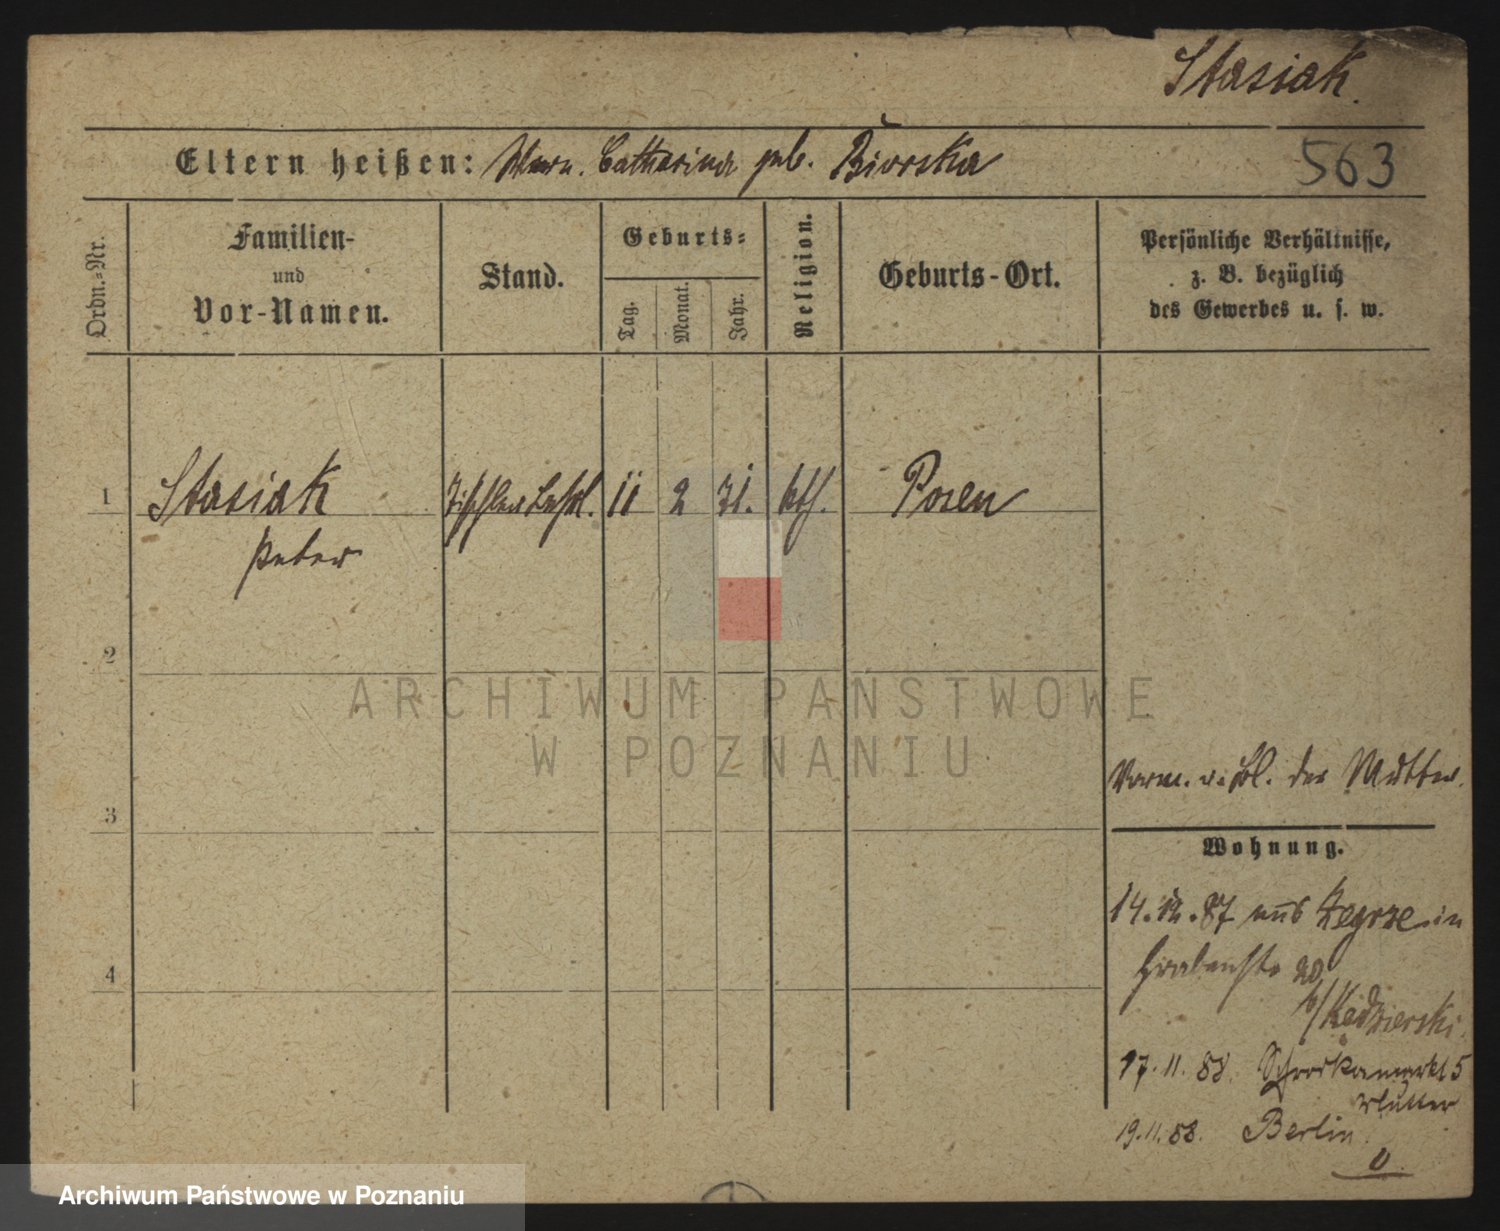 Stasiak.
Eltern heißen: Catharina geb. Biorska
563
Ordn.-Nr.
Familien-
und
Vor-Namen.
Stand.
Geburts-
Tag.
Monat.
Jahr.
Religion.
Geburts-Ort.
Persönliche Verhältnisse,
z. B. bezüglich
des Gewerbes u. s. w.
1
Stasiak
Peter
Tischler
11
2
71.
kth.
Posen
2
3
4
ARCHIWUM PAŃSTWOWE
W POZNANIU
der Mutter.
Wohnung.
14.12.87 aus Zegrze in
Grabenstr 20
b/ Kedzierski.
17.11.88. Schrodkamarkt 5
Mutter
19.11.88. Berlin.
Archiwum Państwowe w Poznaniu